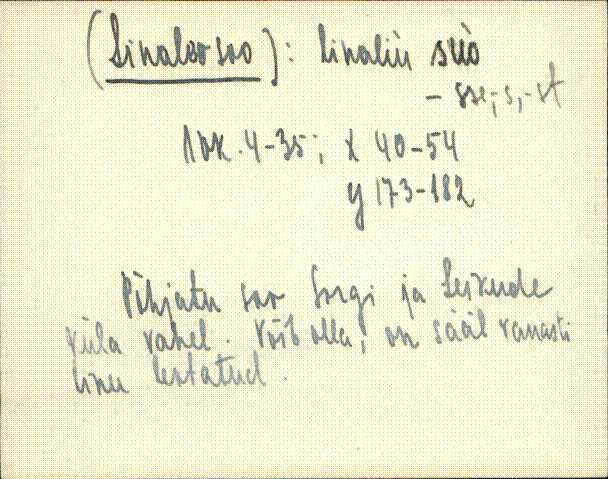 (Linaleo soo): linaliu süo
– sse, -s, -st
1 vk. 4-35; x 40-54
y 173-182
Põhjatu soo Sorgi ja Leikude
küla vahel. Võib olla, on sääl vanasti
linu leotatud.